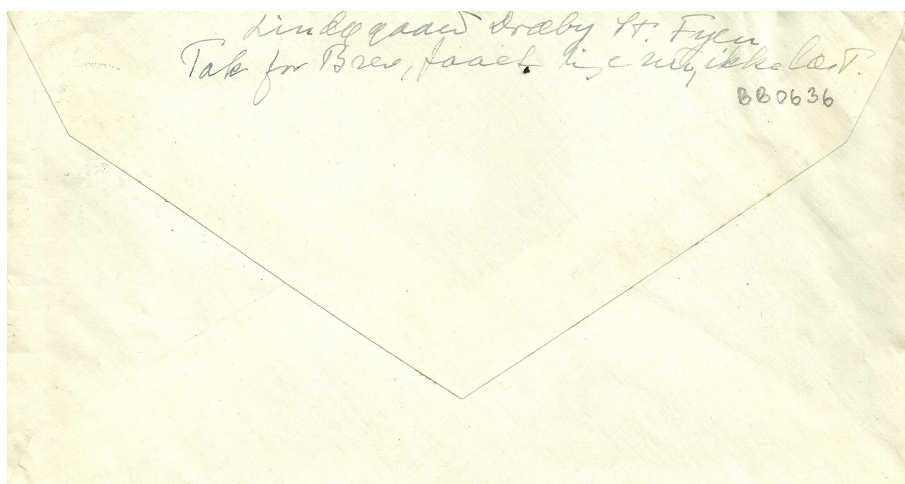 Lindøgaard Dræby St. Fyen
Tak for Brev, faaet lige nu, ikke læst.
BB0636